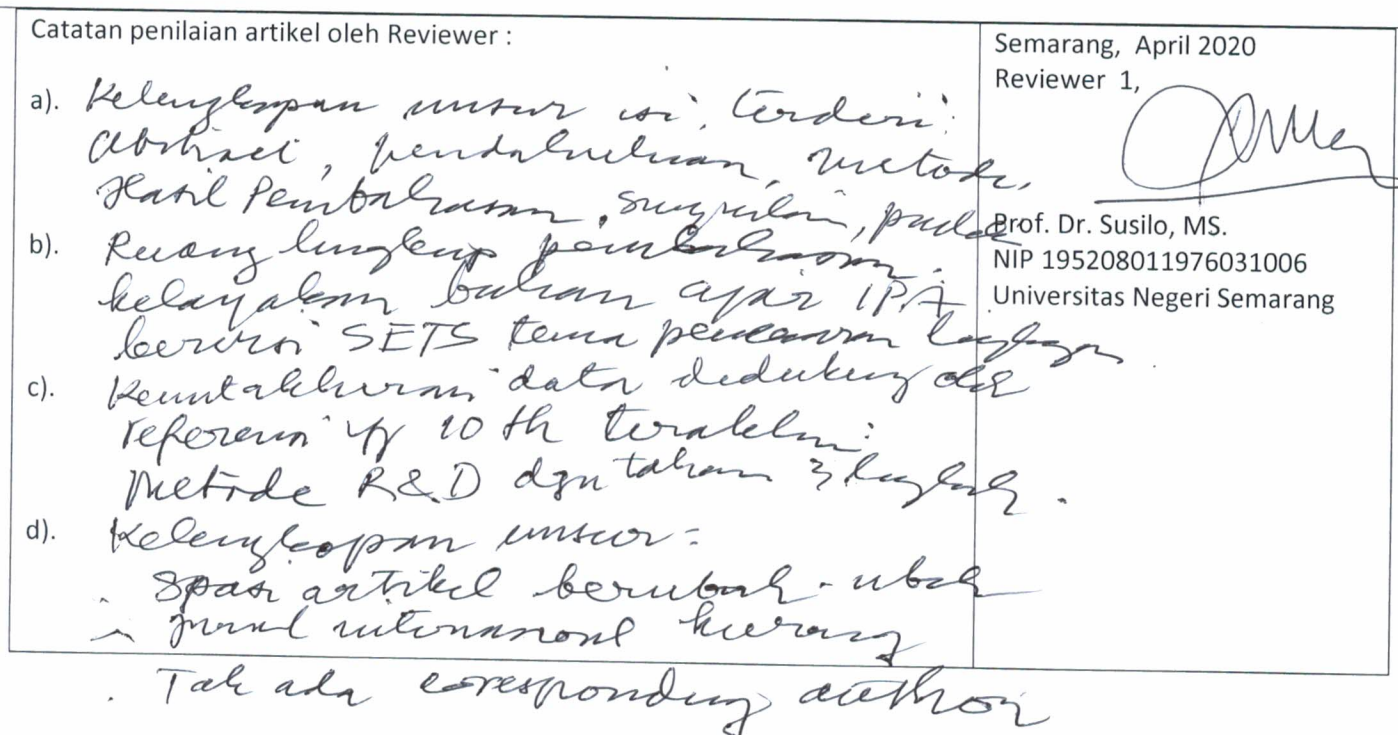 Catatan penilaian artikel oleh Reviewer :
a). Kelengkapan unsur isi, terdiri:
Abstract, pendahuluan, metode,
Hasil Pembahasan, simpulan,
b). Ruang lingkup pembahasan.
kelayakan bahan ajar IPA
bervisi SETS tema pencemaran lingkungan
c). Kemutakhiran data didukung oleh
referensi yg 10 th terakhir
Metode R&D dgn tahan 3 langkah.
d). Kelengkapan unsur:
. Spasi artikel berubah-ubah
- jurnal internasional kurang
. Tak ada coresponding author
Semarang, April 2020
Reviewer 1,
Prof. Dr. Susilo, MS.
NIP 195208011976031006
Universitas Negeri Semarang